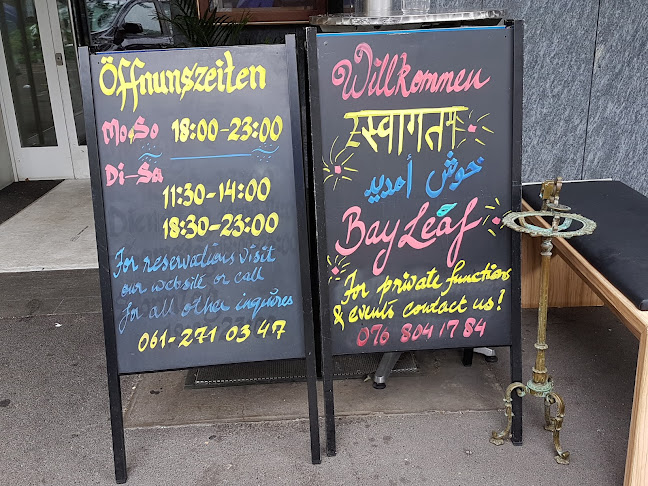 Öffnunszeiten
Mo&So 18:00-23:00
Di-Sa
11:30-14:00
18:30-23:00
For reservations visit
our website or call
for all other inquires
061-271 03 47
Willkommen
स्वागतम
خوش آمدید
Bay Leaf
For private functions
& events contact us!
076 804 17 84